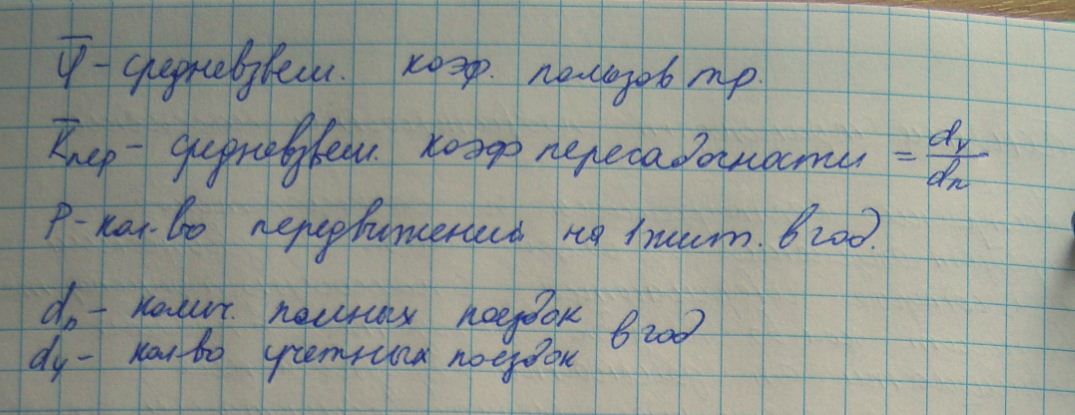 φ̅ - средневзвеш. коэф. пользов тр.
K̅пер - средневзвеш. коэф пересадочности = dу/dп
P - кол-во передвижений на 1 жит. в год.
dп - колич. полных поездок
dу - кол-во учетных поездок в год